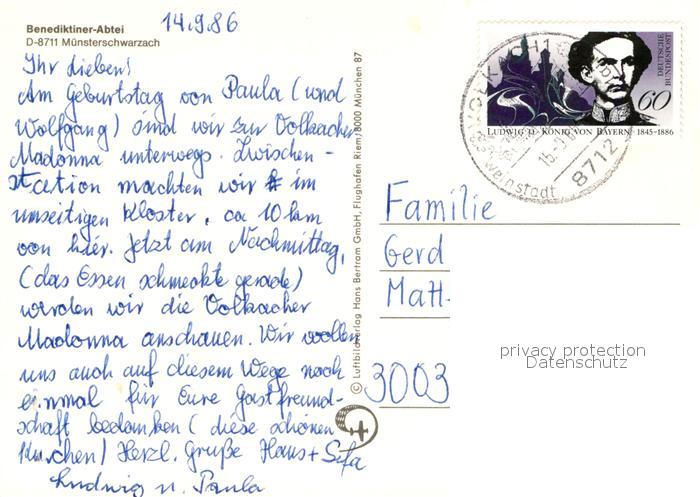 14.9.86
Benediktiner-Abtei
D-8711 Münsterschwarzach
Ihr Lieben!
Am Geburtstag von Paula (und
Wolfgang) sind wir zur Volkacher
Madonna unterwegs. Zwischen-
station machten wir im
umseitigen Kloster, ca 10 km
von hier. Jetzt am Nachmittag,
(das Essen schmeckte gerade)
werden wir die Volkacher
Madonna anschauen. Wir wollen
uns auch auf diesem Wege noch
einmal für Eure Gastfreund-
schaft bedanken (diese schönen
Kuchen) Herzl. Grüße Hans +
Ludwig u. Paula
© Luftbildverlag Hans Bertram GmbH, Flughafen Riem/8000 München 87
DEUTSCHE
BUNDESPOST
60
LUDWIG II. KÖNIG VON BAYERN · 1845-1886
VOLKACH 1
15.
8712
Weinstadt
Familie
Gerd
Matt-
3003
privacy protection
Datenschutz